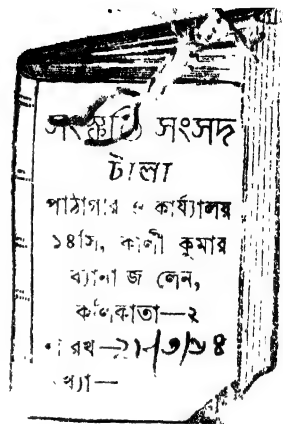 সংস্কৃতি সংসদ
টালা
পাঠাগার ও কার্য্যালয়
১৪সি, কালী কুমার
ব্যানার্জি লেন,
কলিকাতা—২